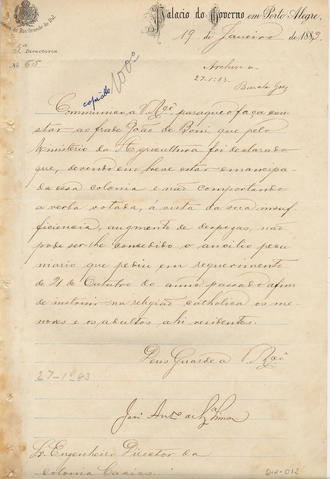 Palacio do Governo em Porto Alegre,
19 de Janeiro de 1883
2ª Directoria
Nº 605
copiado
100$
Archive-se
27-1-83
Communico a Vmcê para que faça con-
star ao frade João de que pelo
Ministerio da Agricultura foi declarado
que, devendo em breve estar emancipa-
da essa colonia e não comportando
a verba votada, á vista da sua insuf-
ficiencia, augmento de despezas, não
pode ser-lhe concedido o auxilio pecu-
niario que pediu em requerimento
de 21 de Outubro do anno passado afim
de instruir na religião catholica os me-
nores e os adultos ahi residentes.
Deus Guarde a Vmcê
27-1º-83
José Antº de
Sr. Engenheiro Director da
colonia Caxias.
012